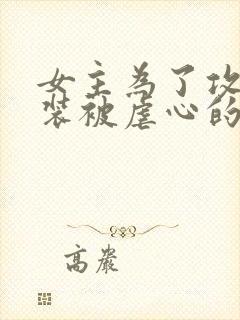 女主為了攻
裝被虐心的
高嚴